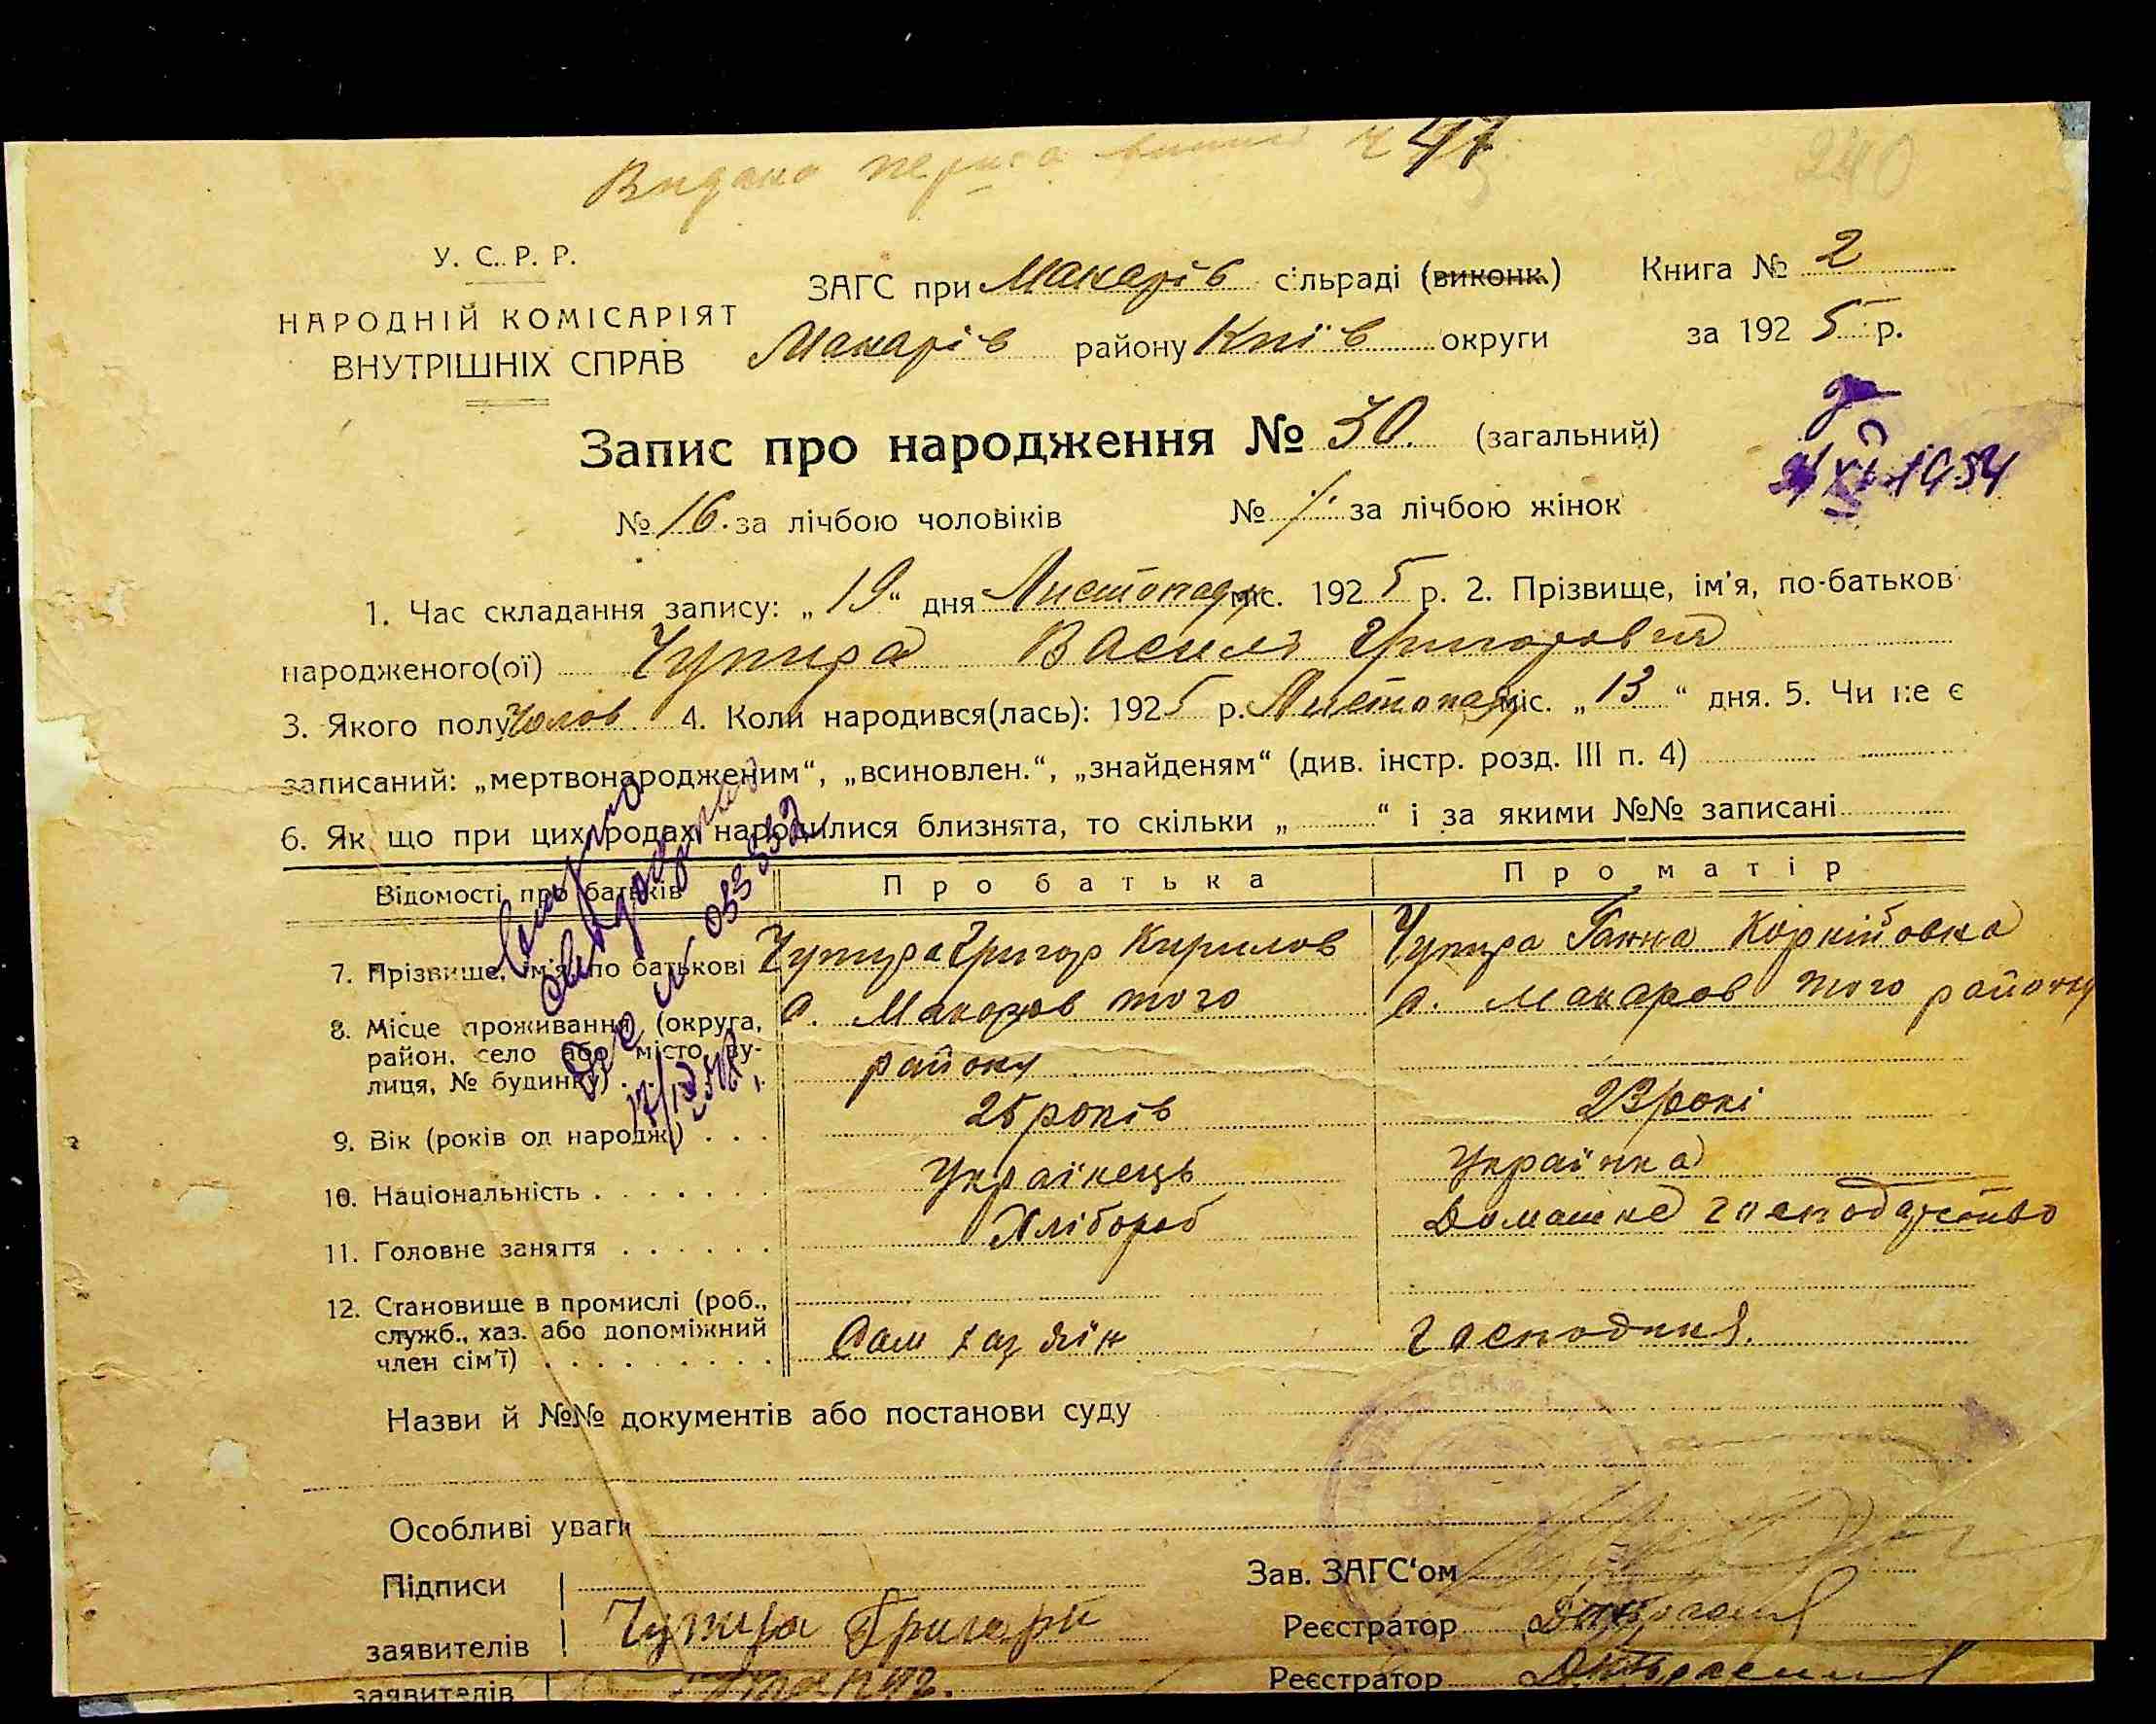 Видано 47
240
У. С. Р. Р.
НАРОДНІЙ КОМІСАРІЯТ
ВНУТРІШНІХ СПРАВ
ЗАГС при Макарів сільраді (виконк.)
Макарів району Київ округи
Книга № 2
за 1925 р.
Запис про народження № 30. (загальний)
XI 1954
№ 16. за лічбою чоловіків № за лічбою жінок
1. Час складання запису: „19“ дня Листопаду міс. 1925 р. 2. Прізвище, ім'я, по-батьков
народженого(ої) Чупира Василь Григорович
3. Якого полу Чолов 4. Коли народився(лась): 1925 р. Листопаду міс. „13“ дня. 5. Чи не є
записаний: „мертвонародженим“, „всиновлен.“, „знайденям“ (див. інстр. розд. III п. 4)
6. Як що при цих родах народилися близнята, то скільки „ “ і за якими №№ записані
Відомості про батьків Про батька Про матір
7. Прізвище, ім'я, по батькові Чупира Григор Кирилов Чупира Ганна Корнійовна
8. Місце проживання (округа, район, село або місто, вулиця, № будинку) с. Макаров того району с. Макаров того району
9. Вік (років од народж.) 25 років 23 роки
10. Національність Українець Українка
11. Головне заняття Хлібороб Домашнє господарство
12. Становище в промислі (роб., служб., хаз. або допоміжний член сім'ї) Сам хазяїн Господиня.
Назви й №№ документів або постанови суду
Особливі уваги
Підписи
заявителів Чупира Григорій
Зав. ЗАГС'ом
Реєстратор
заявителів
Реєстратор